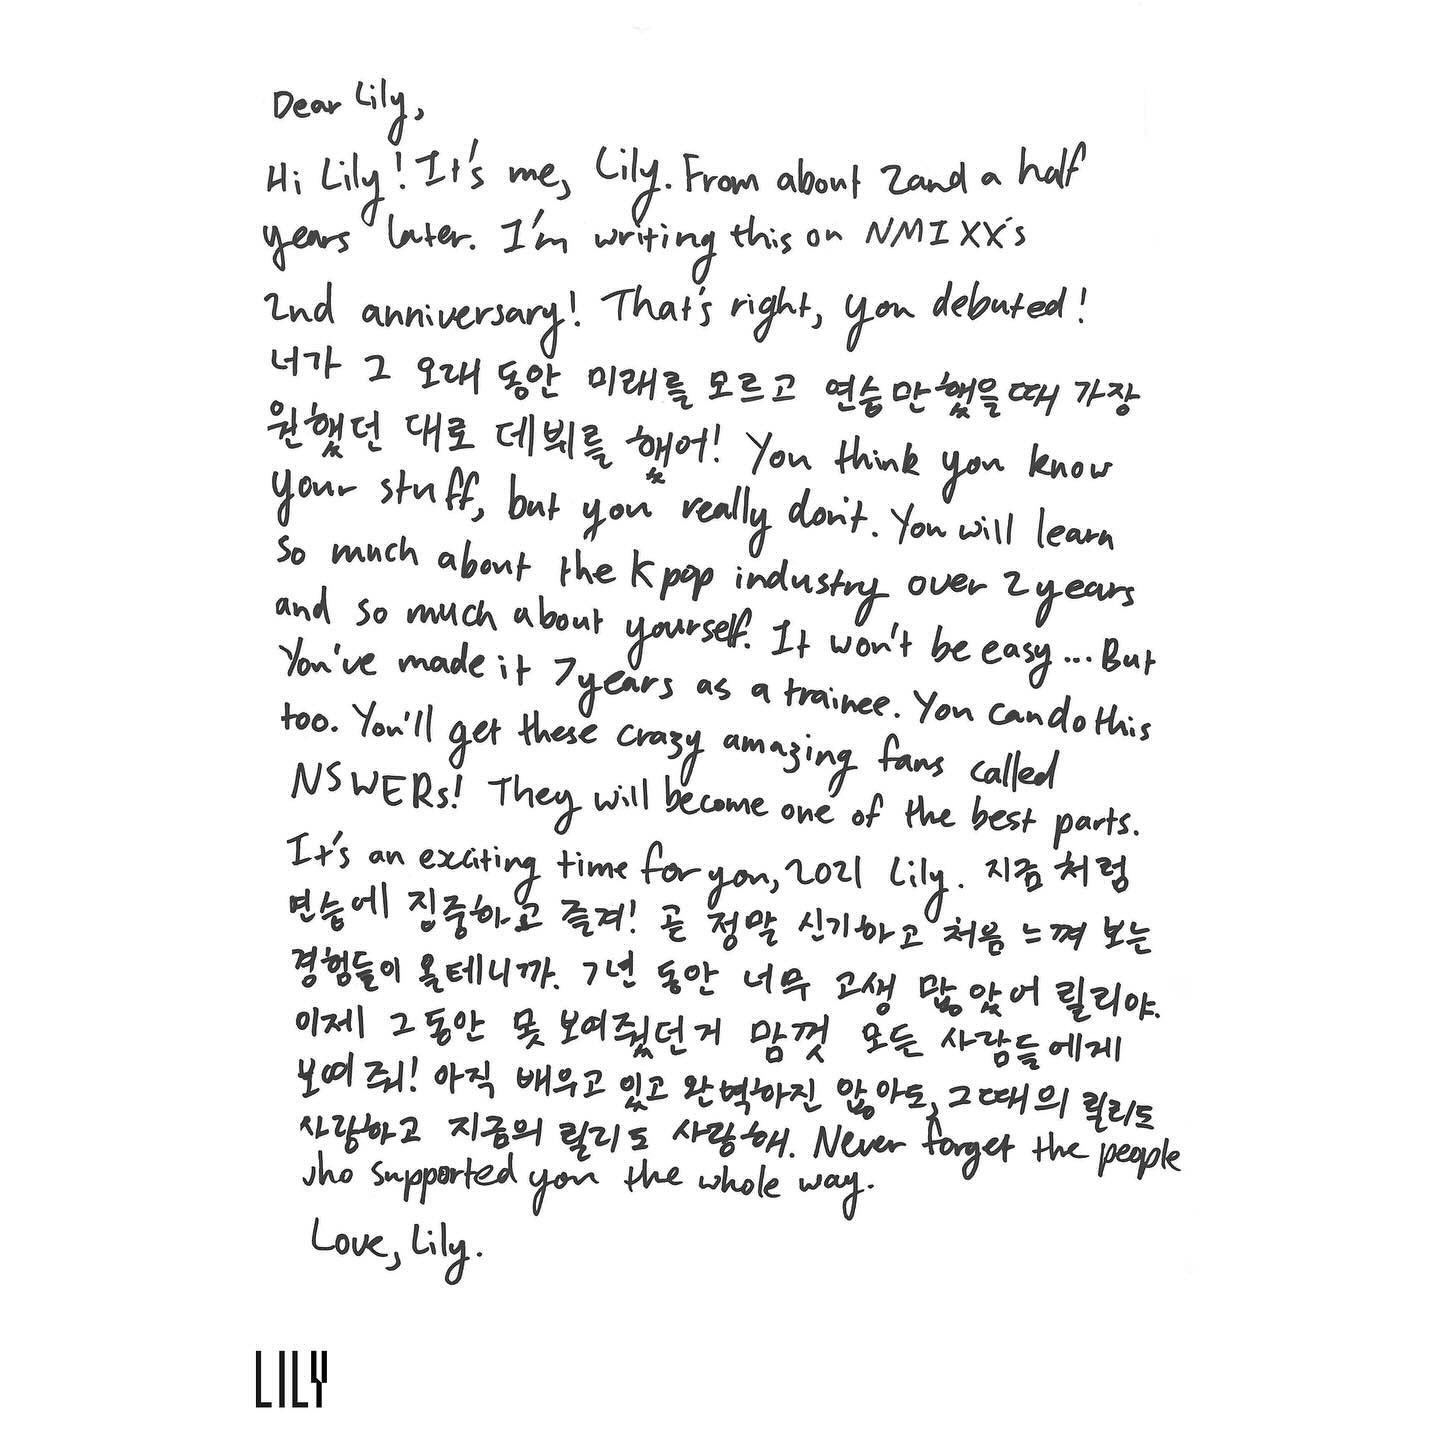 Dear Lily,
Hi Lily! It's me, Lily. From about 2 and a half
years later. I'm writing this on NMIXX's
2nd anniversary! That's right, you debuted!
너가 그 오래 동안 미래를 모르고 연습만 했을 때 가장
원했던 대로 데뷔를 했어! You think you know
your stuff, but you really don't. You will learn
so much about the Kpop industry over 2 years
and so much about yourself. It won't be easy... But
You've made it 7 years as a trainee. You can do this
too. You'll get these crazy amazing fans called
NSWERs! They will become one of the best parts.
It's an exciting time for you, 2021 Lily. 지금 처럼
연습에 집중하고 즐겨! 곧 정말 신기하고 처음 느껴 보는
경험들이 올테니까. 7년 동안 너무 고생 많았어 릴리야.
이제 그동안 못 보여줬던거 맘껏 모든 사람들에게
보여 줘! 아직 배우고 있고 완벽하진 않아도, 그때의 릴리도
사랑하고 지금의 릴리도 사랑해. Never forget the people
who supported you the whole way.
Love, Lily.
LILY